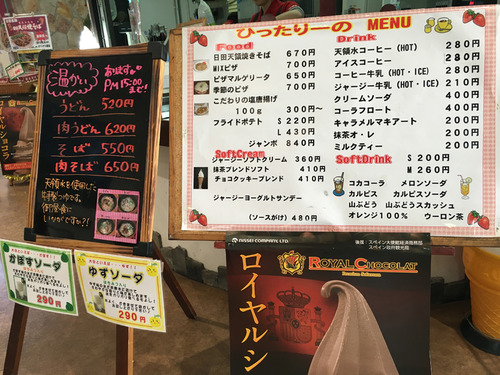 ひったりーの MENU
Food
日田天領焼きそば 670円
MIXピザ 700円
ピザマルゲリータ 650円
季節のピザ 700円
こだわりの塩唐揚げ
100g 300円~
フライドポテト S 220円
L 430円
ジャンボ 840円
SoftCream
ジャージーソフトクリーム 360円
抹茶ブレンドソフト 410円
チョコクッキーブレンド 410円
ジャージーヨーグルトサンデー
(ソースがけ) 480円
Drink
天領水コーヒー (HOT) 280円
アイスコーヒー 280円
コーヒー牛乳 (HOT・ICE) 280円
ジャージー牛乳 (HOT・ICE) 210円
クリームソーダ 400円
コーラフロート 400円
キャラメルマキアート 280円
抹茶オ・レ 280円
ミルクティー 280円
SoftDrink S 200円
M 260円
コカコーラ メロンソーダ
カルピス カルピスソーダ
山ぶどう 山ぶどうスカッシュ
オレンジ100% ウーロン茶
温かい
あります
PM15:00まで!
うどん 520円
肉うどん 620円
そば 550円
肉そば 650円
天領水を使用した
いかがですか?!
かぼすソーダ
290円
ゆずソーダ
290円
NISSEI COMPANY, LTD
後援:スペイン大使館経済商務部
スペイン政府観光局
ROYAL CHOCOLAT
ロイヤルシ
ロイヤルショコラ